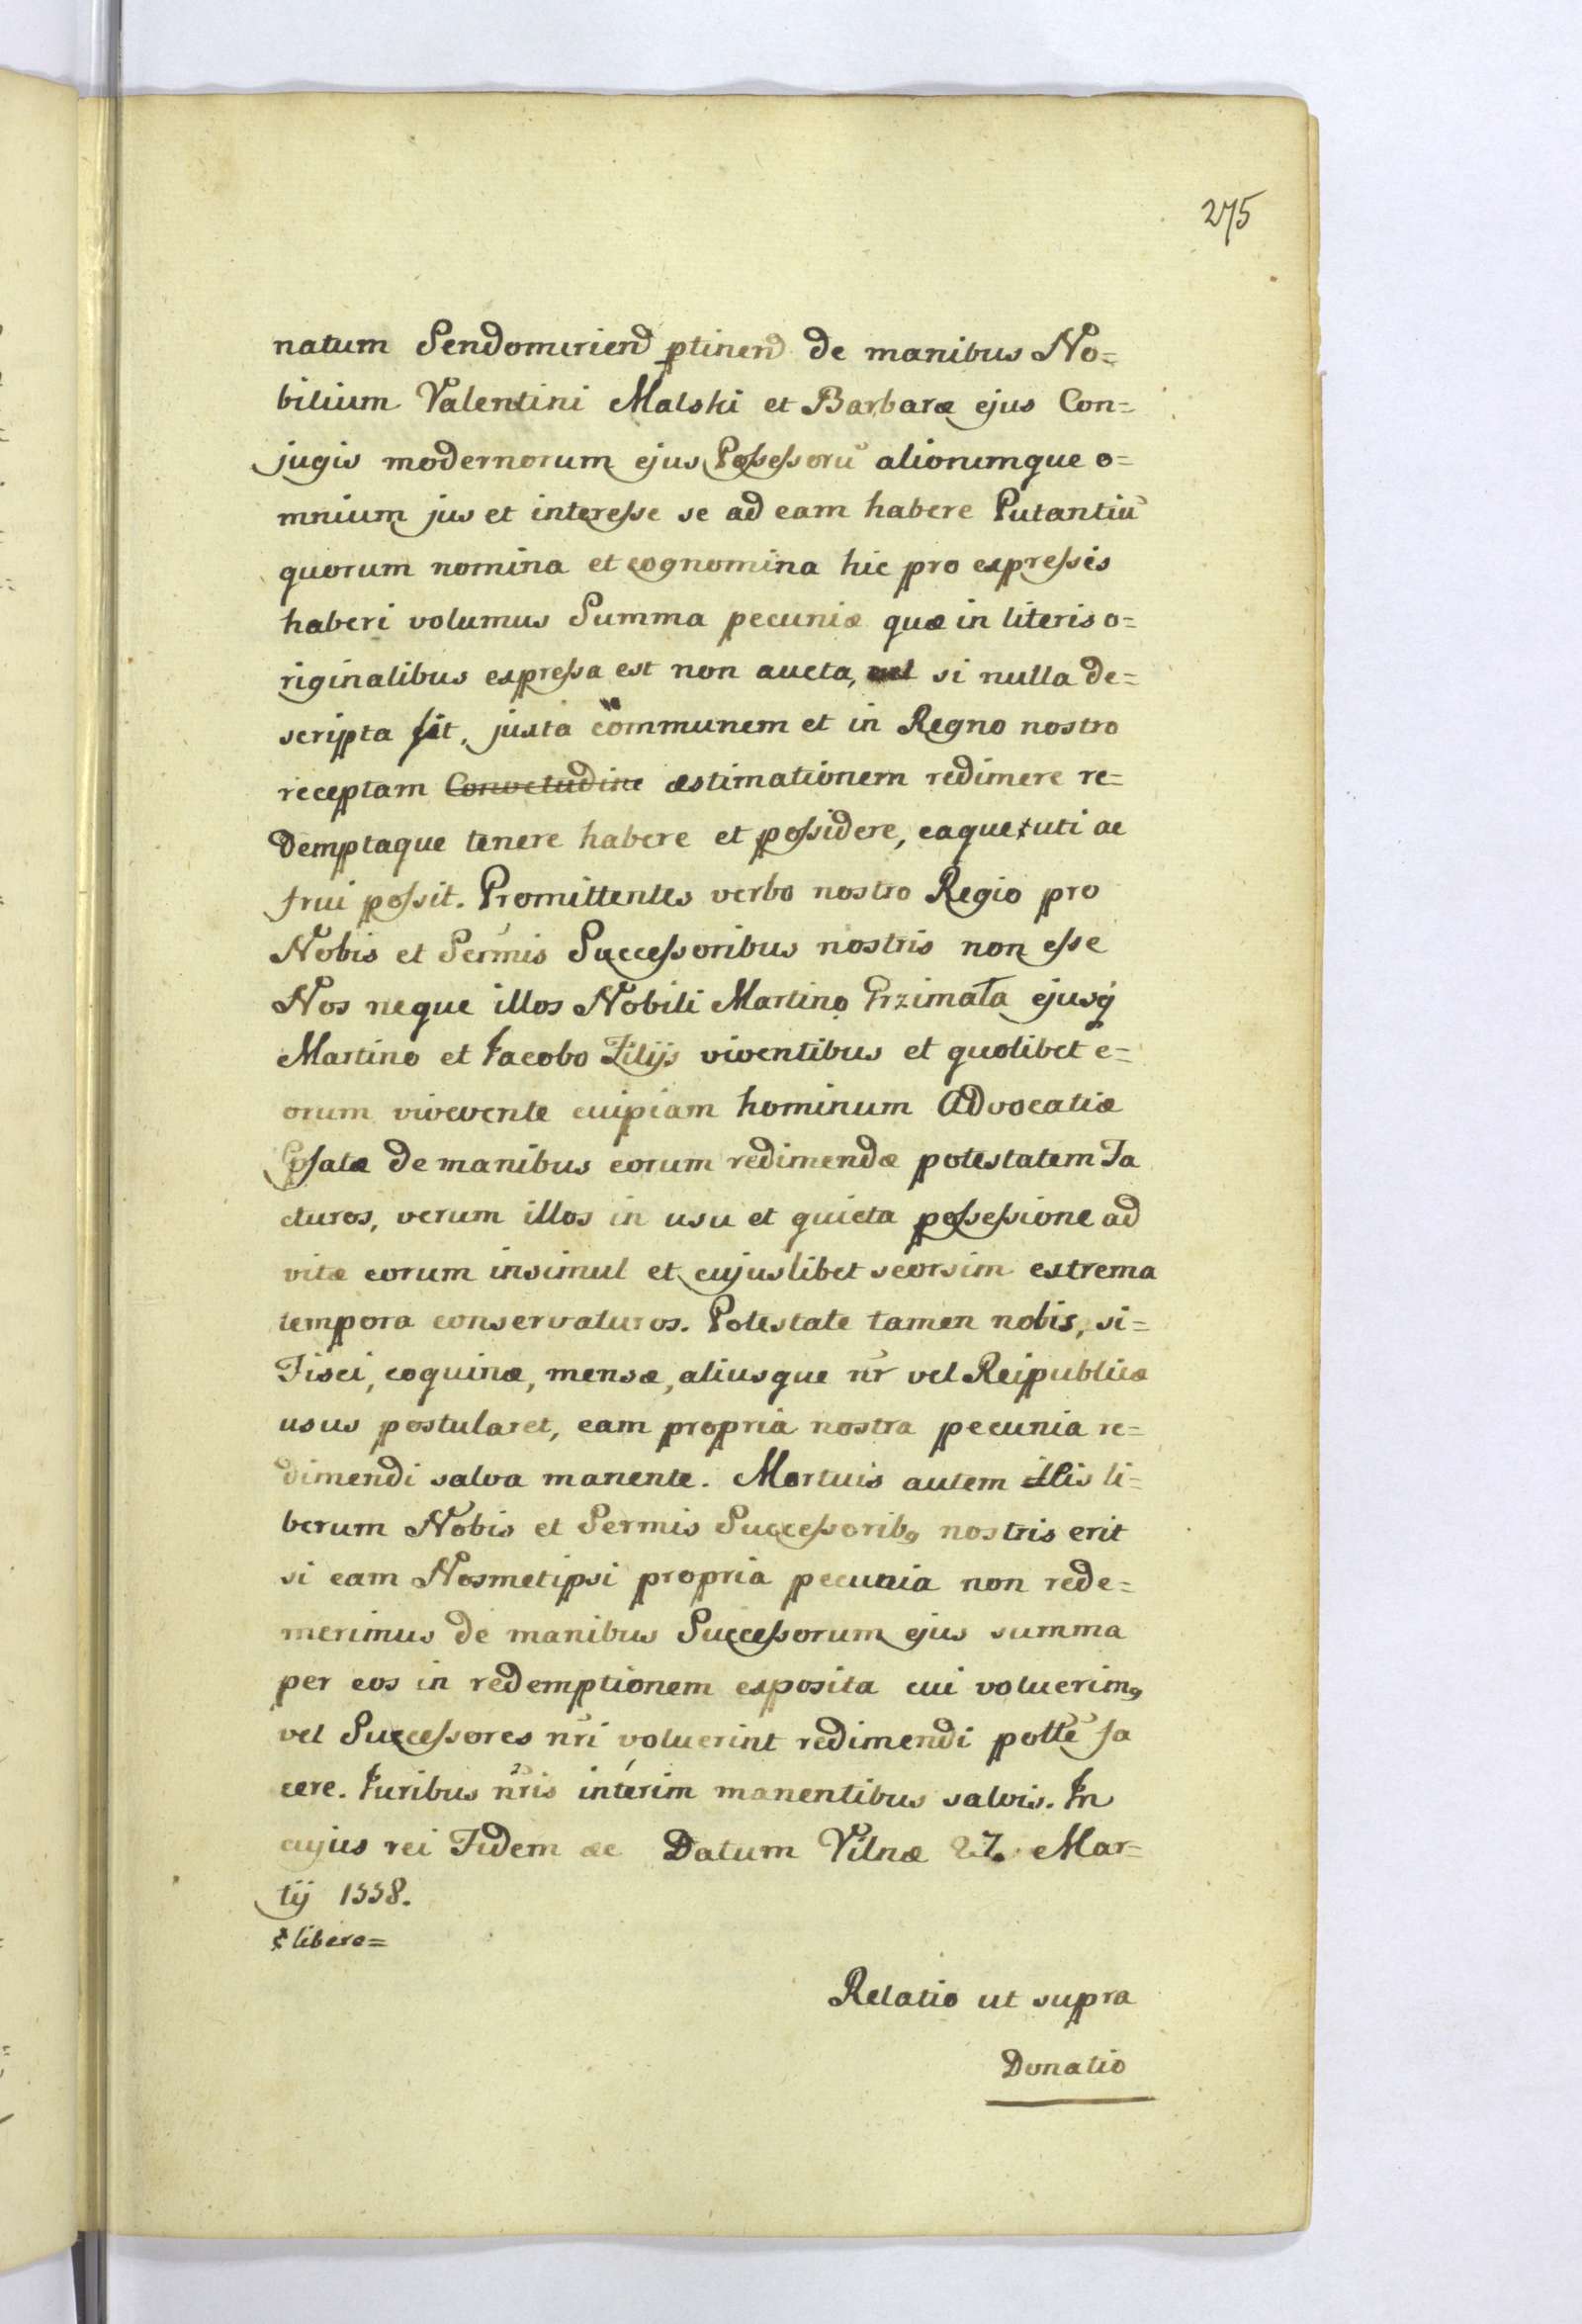 275
natum Sendomirien̄d ꝑtinen̄d de manibus No=
bilium Valentini Malski et Barbaræ ejus Con=
jugis modernorum ejus Poſseſsorū aliorumque o=
mnium jus et intereſse se ad eam habere Putantiū
quorum nomina et cognomina hic pro expreſsis
haberi volumus Summa pecuniæ quæ in literis o=
riginalibus expreſsa est non aucta, vel si nulla de=
scripta sit, juxta communem et in Regno nostro
receptam Consvetudine æstimationem redimere re=
demptaque tenere habere et poſsidere, eaque ꝉ uti ac
frui poſsit. Promittentes verbo nostro Regio pro
Nobis et Serm̄is Succeſsoribus nostris non eſse
Nos neque illos Nobili Martino Grzimała ejusq́
Martino et Jacobo Filijs viventibus et quolibet e=
orum vivevente cuipiam hominum Advocatiæ
Pſatæ de manibus eorum redimendæ potestatem Fa
cturos, verum illos in usu et quieta poſseſsione ad
vitæ eorum insimul et cujuslibet seorsim extrema
tempora conservaturos. Potestate tamen nobis, si=
Fisci, coquinæ, mensæ, aliusque nr̄ vel Reipublicæ
usus postularet, eam propria nostra pecunia re=
dimendi salva manente. Mortuis autem illis li=
berum Nobis et Sermis Succeſsorib9 nostris erit
si eam Nosmetipsi propria pecunia non rede=
merimus de manibus Succeſsorum ejus summa
per eos in redemptionem exposita cui voluerim9
vel Succeſsores nr̄i voluerint redimendi pott̄e fa
cere. Juribus nr̄is interim manentibus salvis. In
cujus rei Fidem &c Datum Vilnæ 27. Mar=
tij 1558.
ꝉ libere=
Relatio ut supra
Donatio